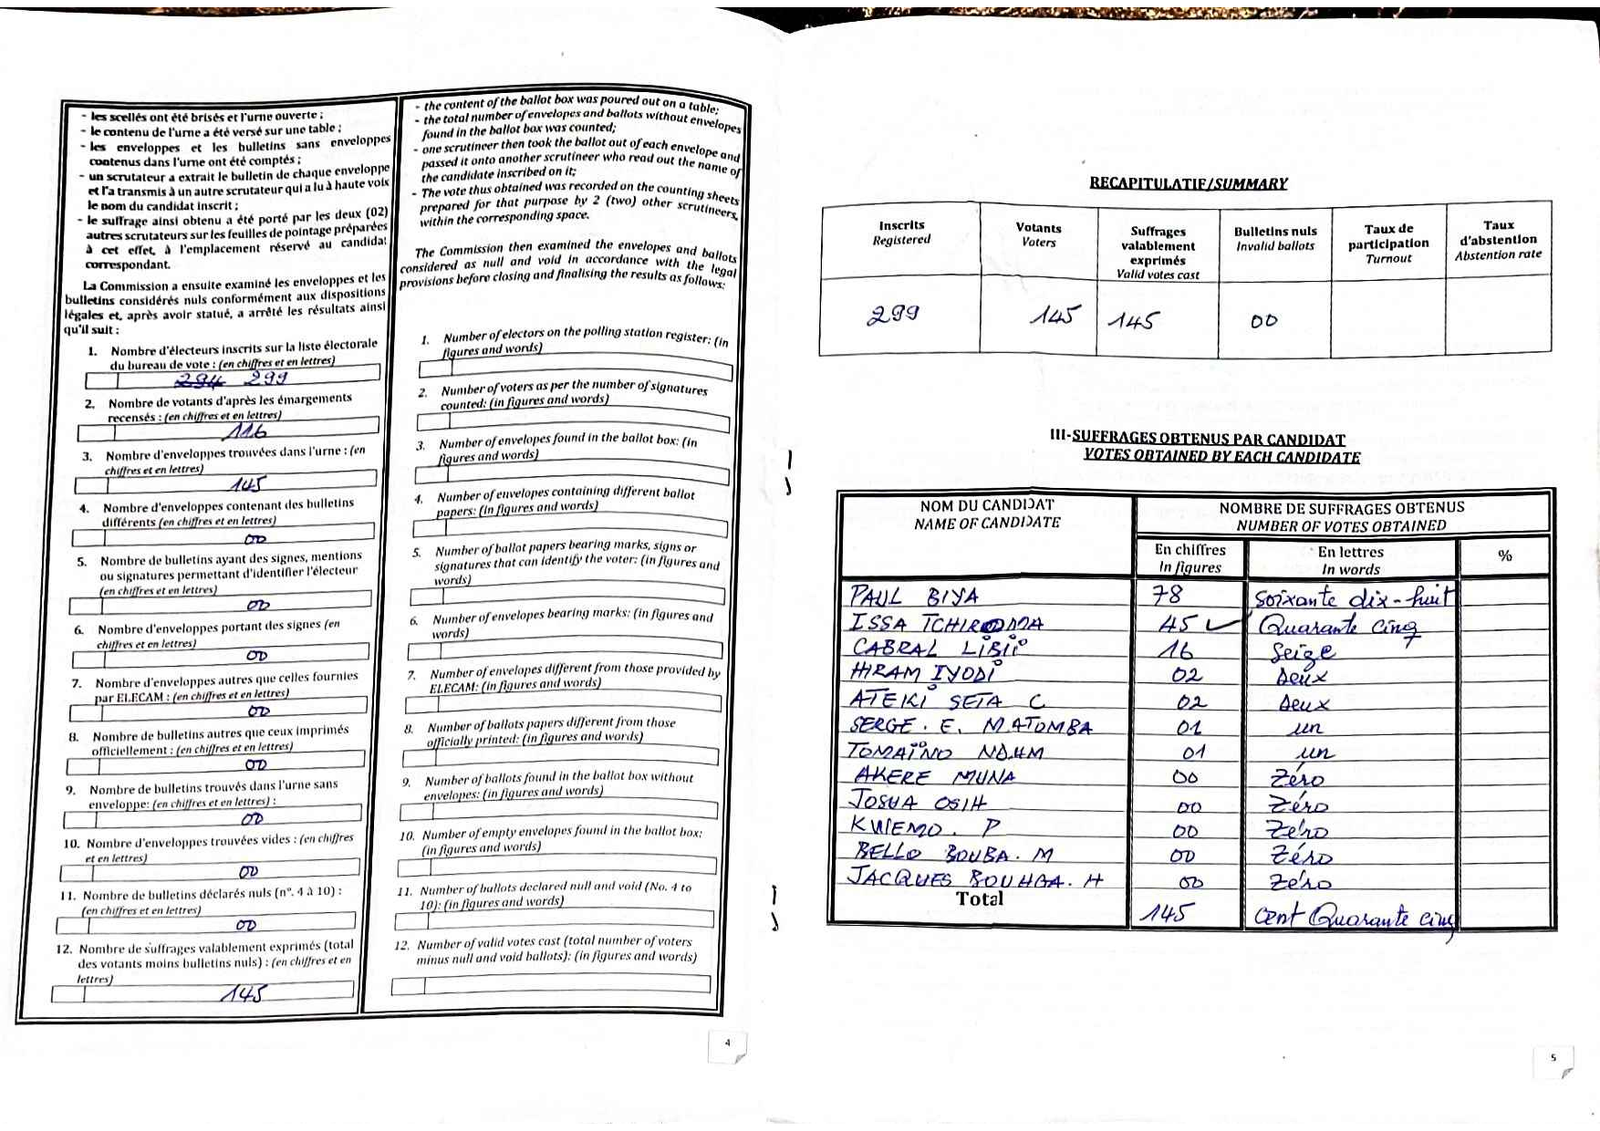 - les scellés ont été brisés et l'urne ouverte ;
- le contenu de l'urne a été versé sur une table ;
- les enveloppes et les bulletins sans enveloppes
contenus dans l'urne ont été comptés ;
- un scrutateur a extrait le bulletin de chaque enveloppe
et l'a transmis à un autre scrutateur qui a lu à haute voix
le nom du candidat inscrit ;
- le suffrage ainsi obtenu a été porté par les deux (02)
autres scrutateurs sur les feuilles de pointage préparées
à cet effet, à l'emplacement réservé au candidat
correspondant.
La Commission a ensuite examiné les enveloppes et les
bulletins considérés nuls conformément aux dispositions
légales et, après avoir statué, a arrêté les résultats ainsi
qu'il suit :
1. Nombre d'électeurs inscrits sur la liste électorale
du bureau de vote : (en chiffres et en lettres)
294 299
2. Nombre de votants d'après les émargements
recensés : (en chiffres et en lettres)
116
3. Nombre d'enveloppes trouvées dans l'urne : (en
chiffres et en lettres)
145
4. Nombre d'enveloppes contenant des bulletins
différents (en chiffres et en lettres)
00
5. Nombre de bulletins ayant des signes, mentions
ou signatures permettant d'identifier l'électeur
(en chiffres et en lettres)
00
6. Nombre d'enveloppes portant des signes (en
chiffres et en lettres)
00
7. Nombre d'enveloppes autres que celles fournies
par ELECAM : (en chiffres et en lettres)
00
8. Nombre de bulletins autres que ceux imprimés
officiellement : (en chiffres et en lettres)
00
9. Nombre de bulletins trouvés dans l'urne sans
enveloppe: (en chiffres et en lettres) :
00
10. Nombre d'enveloppes trouvées vides : (en chiffres
et en lettres)
00
11. Nombre de bulletins déclarés nuls (n°. 4 à 10) :
(en chiffres et en lettres)
00
12. Nombre de suffrages valablement exprimés (total
des votants moins bulletins nuls) : (en chiffres et en
lettres)
145
- the content of the ballot box was poured out on a table;
- the total number of envelopes and ballots without envelopes
found in the ballot box was counted;
- one scrutineer then took the ballot out of each envelope and
passed it onto another scrutineer who read out the name of
the candidate inscribed on it;
- The vote thus obtained was recorded on the counting sheets
prepared for that purpose by 2 (two) other scrutineers,
within the corresponding space.
The Commission then examined the envelopes and ballots
considered as null and void in accordance with the legal
provisions before closing and finalising the results as follows:
1. Number of electors on the polling station register: (in
figures and words)
2. Number of voters as per the number of signatures
counted: (in figures and words)
3. Number of envelopes found in the ballot box: (in
figures and words)
4. Number of envelopes containing different ballot
papers: (in figures and words)
5. Number of ballot papers bearing marks, signs or
signatures that can identify the voter: (in figures and
words)
6. Number of envelopes bearing marks: (in figures and
words)
7. Number of envelopes different from those provided by
ELECAM: (in figures and words)
8. Number of ballots papers different from those
officially printed: (in figures and words)
9. Number of ballots found in the ballot box without
envelopes: (in figures and words)
10. Number of empty envelopes found in the ballot box:
(in figures and words)
11. Number of ballots declared null and void (No. 4 to
10): (in figures and words)
12. Number of valid votes cast (total number of voters
minus null and void ballots): (in figures and words)
4
RECAPITULATIF/SUMMARY
Inscrits Registered | Votants Voters | Suffrages valablement exprimés Valid votes cast | Bulletins nuls Invalid ballots | Taux de participation Turnout | Taux d'abstention Abstention rate
299 145 145 00
III-SUFFRAGES OBTENUS PAR CANDIDAT
VOTES OBTAINED BY EACH CANDIDATE
NOM DU CANDIDAT NOMBRE DE SUFFRAGES OBTENUS
NAME OF CANDIDATE NUMBER OF VOTES OBTAINED
En chiffres En lettres %
In figures In words
PAUL BIYA 78 Soixante dix-huit
ISSA TCHIROMA 45 Quarante cinq
CABRAL LIBII 16 Seize
HIRAM IYODI 02 Deux
ATEKI SETA C 02 Deux
SERGE. E. MATOMBA 01 un
TOMAÏNO NDAM 01 un
AKERE MUNA 00 Zéro
JOSUA OSIH 00 Zéro
KWEMO. P 00 Zéro
BELLO BOUBA. M 00 Zéro
JACQUES BOUHGA. H 00 Zéro
Total 145 Cent Quarante cinq
5